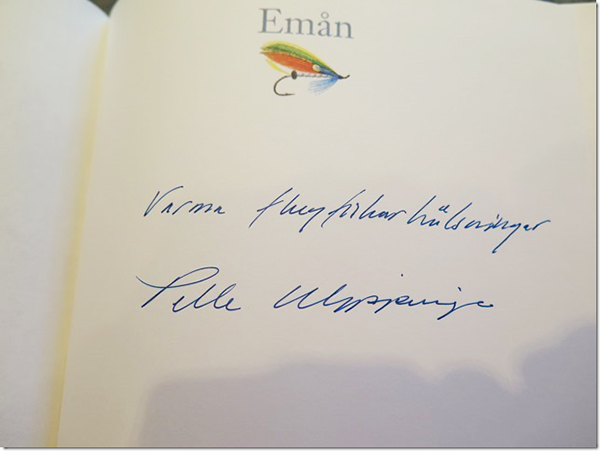 Emån
Varma flugfiskarhälsningar
Pelle